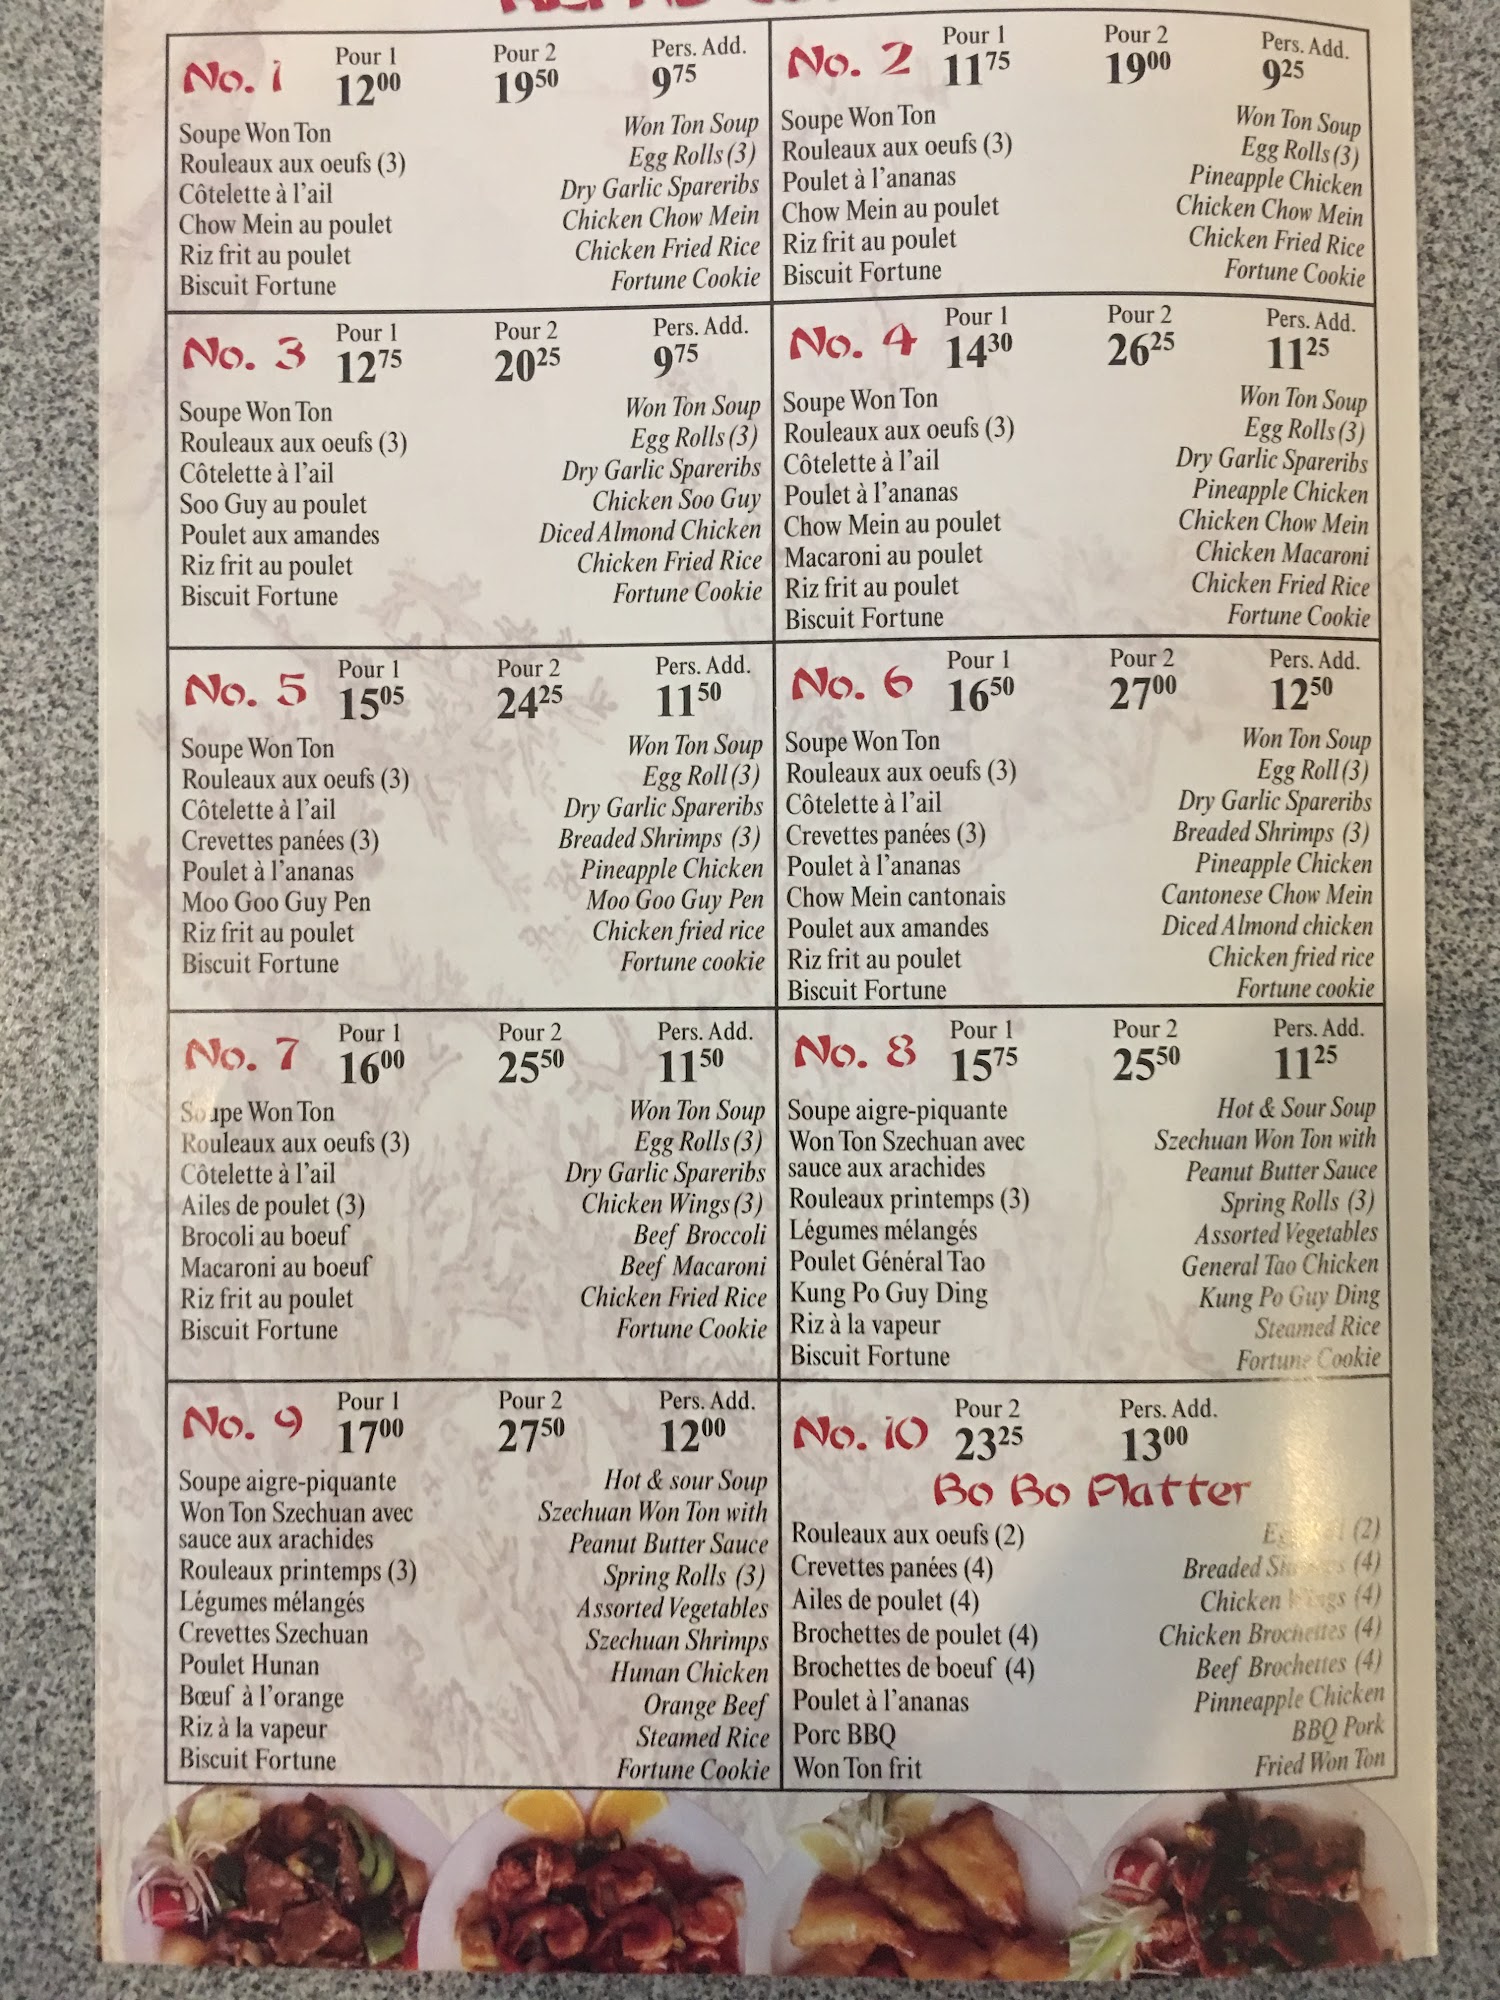 No. 1 Pour 1 Pour 2 Pers. Add.
12⁰⁰ 19⁵⁰ 9⁷⁵
Soupe Won Ton Won Ton Soup
Rouleaux aux oeufs (3) Egg Rolls (3)
Côtelette à l'ail Dry Garlic Spareribs
Chow Mein au poulet Chicken Chow Mein
Riz frit au poulet Chicken Fried Rice
Biscuit Fortune Fortune Cookie
No. 2 Pour 1 Pour 2 Pers. Add.
11⁷⁵ 19⁰⁰ 9²⁵
Soupe Won Ton Won Ton Soup
Rouleaux aux oeufs (3) Egg Rolls (3)
Poulet à l'ananas Pineapple Chicken
Chow Mein au poulet Chicken Chow Mein
Riz frit au poulet Chicken Fried Rice
Biscuit Fortune Fortune Cookie
No. 3 Pour 1 Pour 2 Pers. Add.
12⁷⁵ 20²⁵ 9⁷⁵
Soupe Won Ton Won Ton Soup
Rouleaux aux oeufs (3) Egg Rolls (3)
Côtelette à l'ail Dry Garlic Spareribs
Soo Guy au poulet Chicken Soo Guy
Poulet aux amandes Diced Almond Chicken
Riz frit au poulet Chicken Fried Rice
Biscuit Fortune Fortune Cookie
No. 4 Pour 1 Pour 2 Pers. Add.
14³⁰ 26²⁵ 11²⁵
Soupe Won Ton Won Ton Soup
Rouleaux aux oeufs (3) Egg Rolls (3)
Côtelette à l'ail Dry Garlic Spareribs
Poulet à l'ananas Pineapple Chicken
Chow Mein au poulet Chicken Chow Mein
Macaroni au poulet Chicken Macaroni
Riz frit au poulet Chicken Fried Rice
Biscuit Fortune Fortune Cookie
No. 5 Pour 1 Pour 2 Pers. Add.
15⁰⁵ 24²⁵ 11⁵⁰
Soupe Won Ton Won Ton Soup
Rouleaux aux oeufs (3) Egg Roll (3)
Côtelette à l'ail Dry Garlic Spareribs
Crevettes panées (3) Breaded Shrimps (3)
Poulet à l'ananas Pineapple Chicken
Moo Goo Guy Pen Moo Goo Guy Pen
Riz frit au poulet Chicken fried rice
Biscuit Fortune Fortune cookie
No. 6 Pour 1 Pour 2 Pers. Add.
16⁵⁰ 27⁰⁰ 12⁵⁰
Soupe Won Ton Won Ton Soup
Rouleaux aux oeufs (3) Egg Roll (3)
Côtelette à l'ail Dry Garlic Spareribs
Crevettes panées (3) Breaded Shrimps (3)
Poulet à l'ananas Pineapple Chicken
Chow Mein cantonais Cantonese Chow Mein
Poulet aux amandes Diced Almond chicken
Riz frit au poulet Chicken fried rice
Biscuit Fortune Fortune cookie
No. 7 Pour 1 Pour 2 Pers. Add.
16⁰⁰ 25⁵⁰ 11⁵⁰
Soupe Won Ton Won Ton Soup
Rouleaux aux oeufs (3) Egg Rolls (3)
Côtelette à l'ail Dry Garlic Spareribs
Ailes de poulet (3) Chicken Wings (3)
Brocoli au boeuf Beef Broccoli
Macaroni au boeuf Beef Macaroni
Riz frit au poulet Chicken Fried Rice
Biscuit Fortune Fortune Cookie
No. 8 Pour 1 Pour 2 Pers. Add.
15⁷⁵ 25⁵⁰ 11²⁵
Soupe aigre-piquante Hot & Sour Soup
Won Ton Szechuan avec Szechuan Won Ton with
sauce aux arachides Peanut Butter Sauce
Rouleaux printemps (3) Spring Rolls (3)
Légumes mélangés Assorted Vegetables
Poulet Général Tao General Tao Chicken
Kung Po Guy Ding Kung Po Guy Ding
Riz à la vapeur Steamed Rice
Biscuit Fortune Fortune Cookie
No. 9 Pour 1 Pour 2 Pers. Add.
17⁰⁰ 27⁵⁰ 12⁰⁰
Soupe aigre-piquante Hot & sour Soup
Won Ton Szechuan avec Szechuan Won Ton with
sauce aux arachides Peanut Butter Sauce
Rouleaux printemps (3) Spring Rolls (3)
Légumes mélangés Assorted Vegetables
Crevettes Szechuan Szechuan Shrimps
Poulet Hunan Hunan Chicken
Bœuf à l'orange Orange Beef
Riz à la vapeur Steamed Rice
Biscuit Fortune Fortune Cookie
No. 10 Pour 2 Pers. Add.
23²⁵ 13⁰⁰
Bo Bo Platter
Rouleaux aux oeufs (2) (2)
Crevettes panées (4) Breaded (4)
Ailes de poulet (4) Chicken Wings (4)
Brochettes de poulet (4) Chicken Brochettes (4)
Brochettes de boeuf (4) Beef Brochettes (4)
Poulet à l'ananas Pinneapple Chicken
Porc BBQ BBQ Pork
Won Ton frit Fried Won Ton